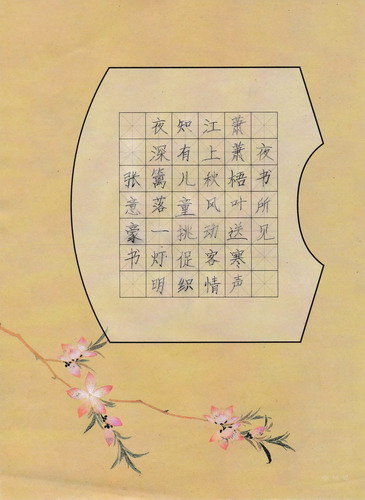 夜书所见
萧萧梧叶送寒声
江上秋风动客情
知有儿童挑促织
夜深篱落一灯明
张意豪书